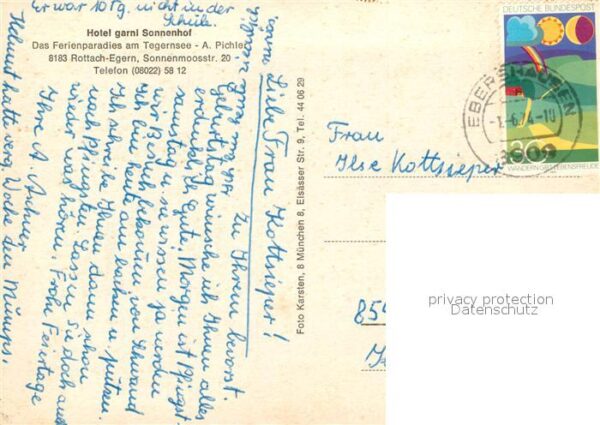 Er war 10 Tg. nicht in der
Schule.
Hotel garni Sonnenhof
Das Ferienparadies am Tegernsee - A. Pichler
8183 Rottach-Egern, Sonnenmoosstr. 20
Telefon (08022) 58 12
Liebe Frau Kottsieper!
Zu Ihrem
Geburtstag wünsche ich Ihnen alles
erdenklich Gute. Morgen ist Pfingst-
samstag u. sie wissen ja werden
wir Besuch bekommen von
ich bin heute am backen u. putzen.
Ich schreibe Ihnen dann schon
nach Pfingsten. Lassen Sie doch auch
wieder was hören. Frohe Feiertage
Ihre A.
Helmut hatte verg. Woche den Mumps.
Foto Karsten, 8 München 8, Elsässer Str. 9, Tel. 44 06 29
DEUTSCHE BUNDESPOST
30
WANDERN GIBT LEBENSFREUDE
EBERSHAUSEN
-1.6.74-10
Frau
Ilse Kottsieper
854
privacy protection
Datenschutz